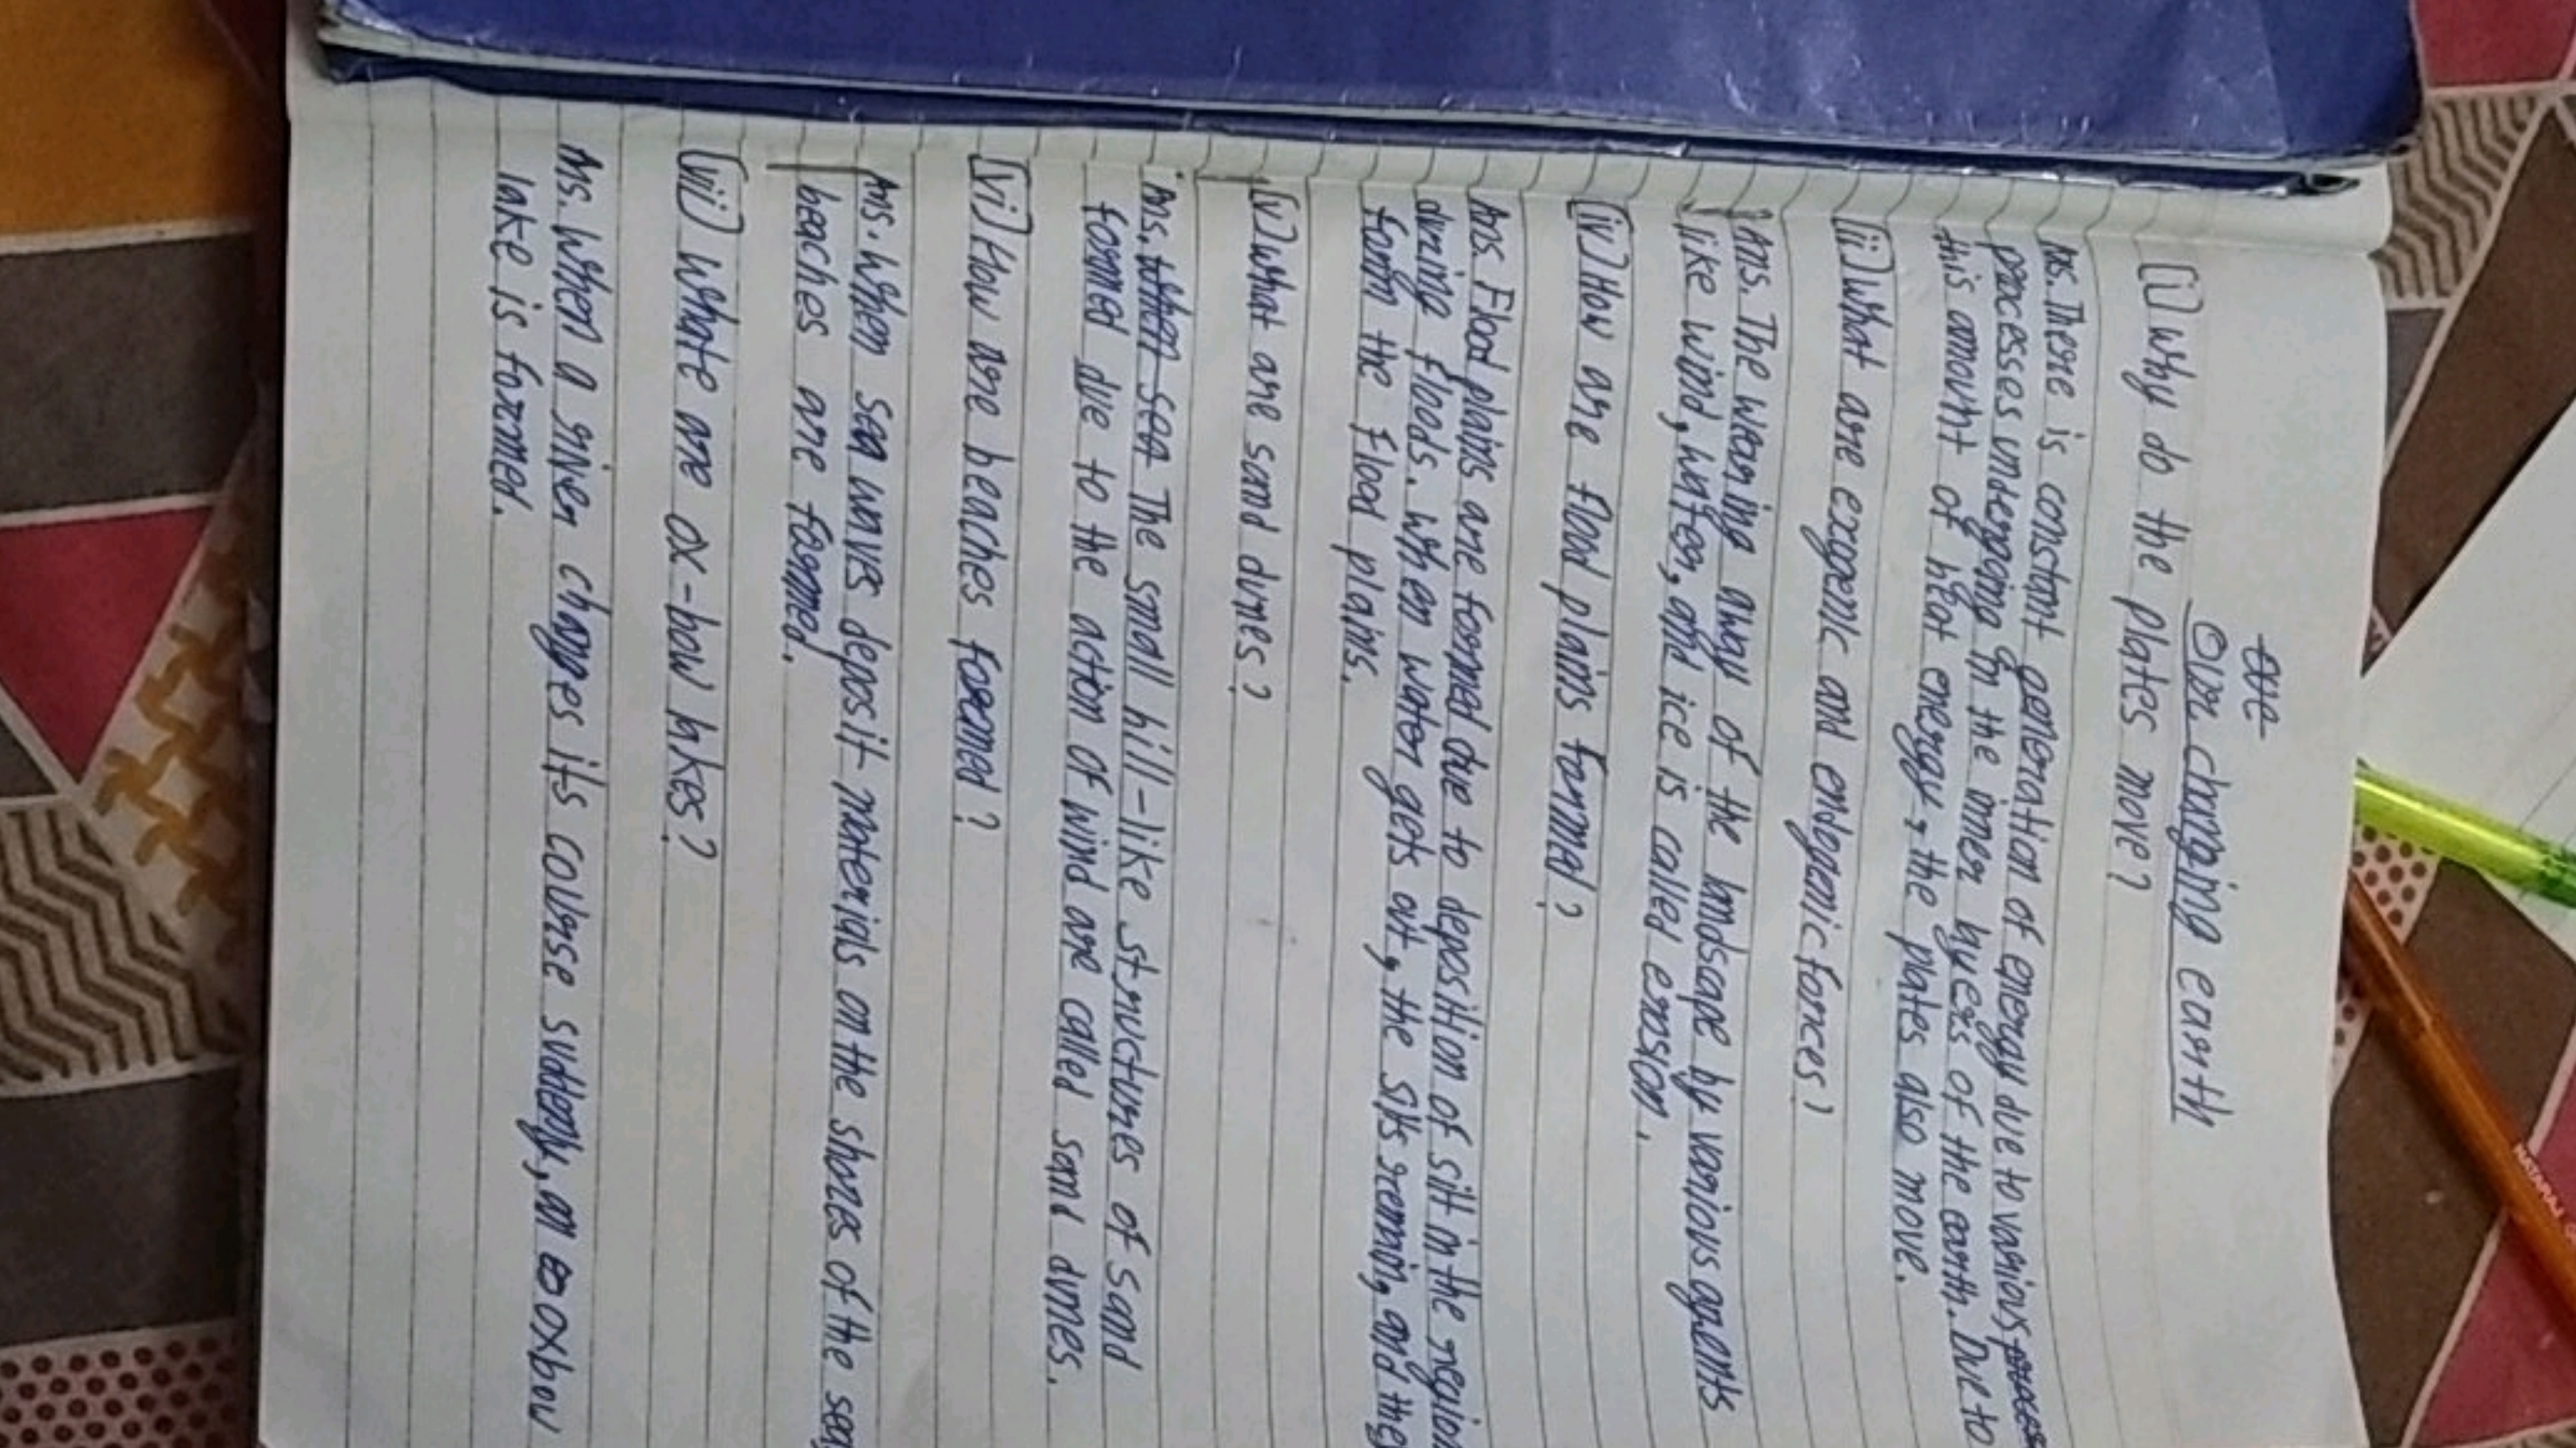 Our
Our changing earth
(i) Why do the plates move?
Ans. There is constant generation of energy due to various process
processes undergoing in the inner layers of the earth. Due to
this amount of heat energy, the plates also move.
(ii) What are exogenic and endogenic forces?
Ans. The wearing away of the landscape by various agents
like wind, water, and ice is called erosion.
(iv) How are flood plains formed?
Ans. Flood plains are formed due to deposition of silt in the region
during floods. When water gets out, the silts remain, and they
form the Flood plains.
(v) What are sand dunes?
Ans. When sea The small hill-like structures of sand
formed due to the action of wind are called sand dunes.
(vi) How are beaches formed?
Ans. When sea waves deposit materials on the shores of the sea,
beaches are formed.
(vii) Whate are ox-bow lakes?
Ans. When a river changes its course suddenly, an oxbow
lake is formed.